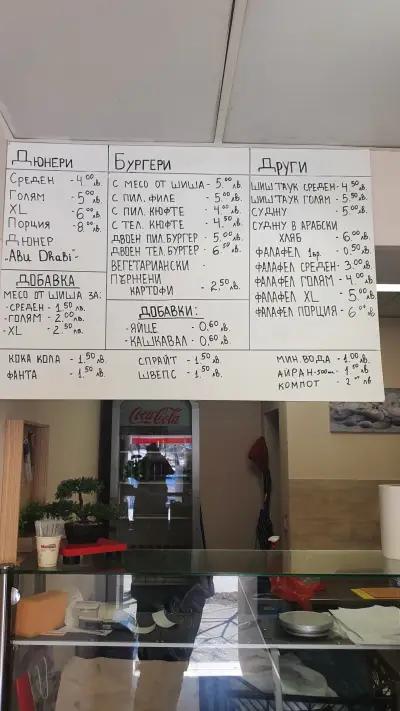 Дюнери
Среден - 4.00 лв.
Голям - 5.00 лв.
XL - 6.00 лв.
Порция - 8.00 лв.
Дюнер
"Abu Dhabi"-
ДОБАВКА
МЕСО ОТ ШИША ЗА:
-СРЕДЕН - 1.50 лв.
-ГОЛЯМ - 2.00 лв.
-XL - 2.50 лв.
Бургери
С МЕСО ОТ ШИША - 5.00 лв.
С ПИЛ. ФИЛЕ - 5.00 лв.
С ПИЛ. КЮФТЕ - 4.00 лв.
С ТЕЛ. КЮФТЕ - 4.50 лв.
ДВОЕН ПИЛ. БУРГЕР - 5.00 лв.
ДВОЕН ТЕЛ. БУРГЕР - 6.50 лв.
ВЕГЕТАРИАНСКИ
ПЪРЖЕНИ
КАРТОФИ - 2.50 лв.
ДОБАВКИ:
-ЯЙЦЕ - 0.60 лв.
-КАШКАВАЛ - 0.60 лв.
Други
ШИШ ТАУК СРЕДЕН - 4.50 лв.
ШИШ ТАУК ГОЛЯМ - 5.50 лв.
СУДЖУ - 5.00 лв.
СУДЖУ В АРАБСКИ
ХЛЯБ - 6.00 лв.
ФАЛАФЕЛ 1бр. - 0.50 лв.
ФАЛАФЕЛ СРЕДЕН - 3.00 лв.
ФАЛАФЕЛ ГОЛЯМ - 4.00 лв.
ФАЛАФЕЛ XL - 5.00 лв.
ФАЛАФЕЛ ПОРЦИЯ - 6.00 лв.
КОКА КОЛА - 1.50 лв.
ФАНТА - 1.50 лв.
СПРАЙТ - 1.50 лв.
ШВЕПС - 1.50 лв.
МИН. ВОДА - 1.00 лв.
АЙРАН-500мл - 1.50 лв.
КОМПОТ - 2.00 лв.
Coca-Cola